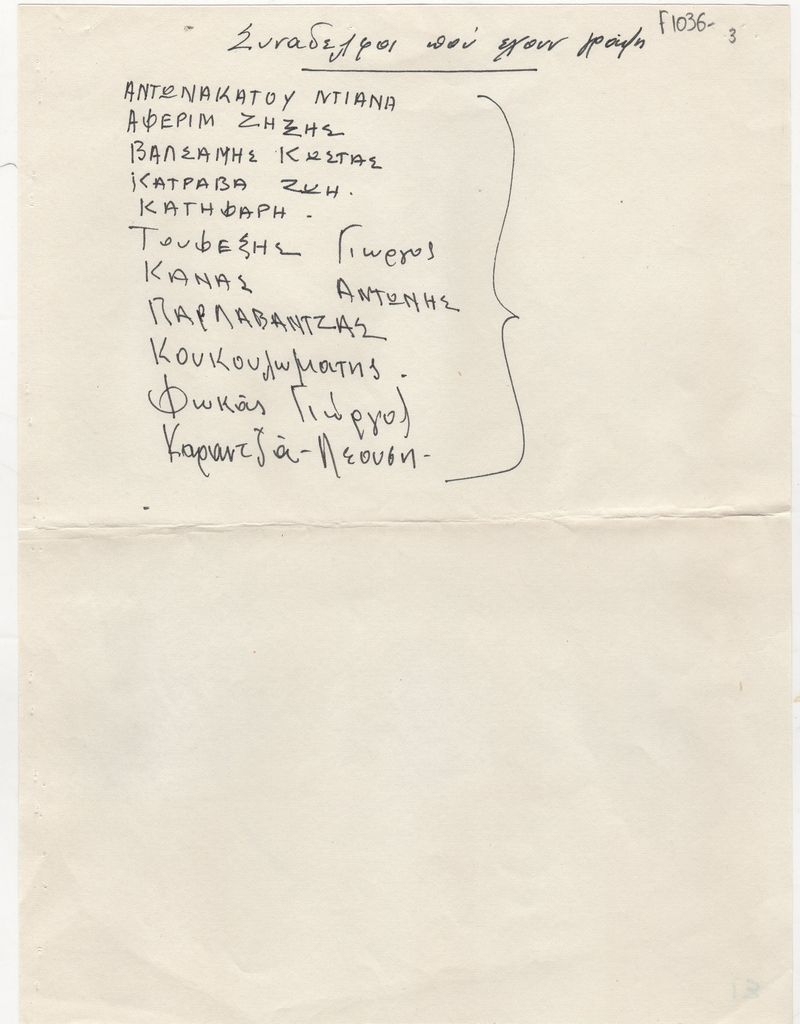 F1036-
3
Συναδελφοι πού εχουν γράψη
ΑΝΤΩΝΑΚΑΤΟΥ ΝΤΙΑΝΑ
ΑΦΕΡΙΜ ΖΗΣΗΣ
ΒΑΛΣΑΜΗΣ ΚΩΣΤΑΣ
ΚΑΤΡΑΒΑ ΖΩΗ.
ΚΑΤΗΦΑΡΗ.
Τουφεξης Γιωργος
ΚΑΝΑΣ ΑΝΤΩΝΗΣ
ΠΑΡΛΑΒΑΝΤΖΑΣ
Κουκουλωματης.
Φωκάς Γιώργος
Καραντζά-Λεουση-